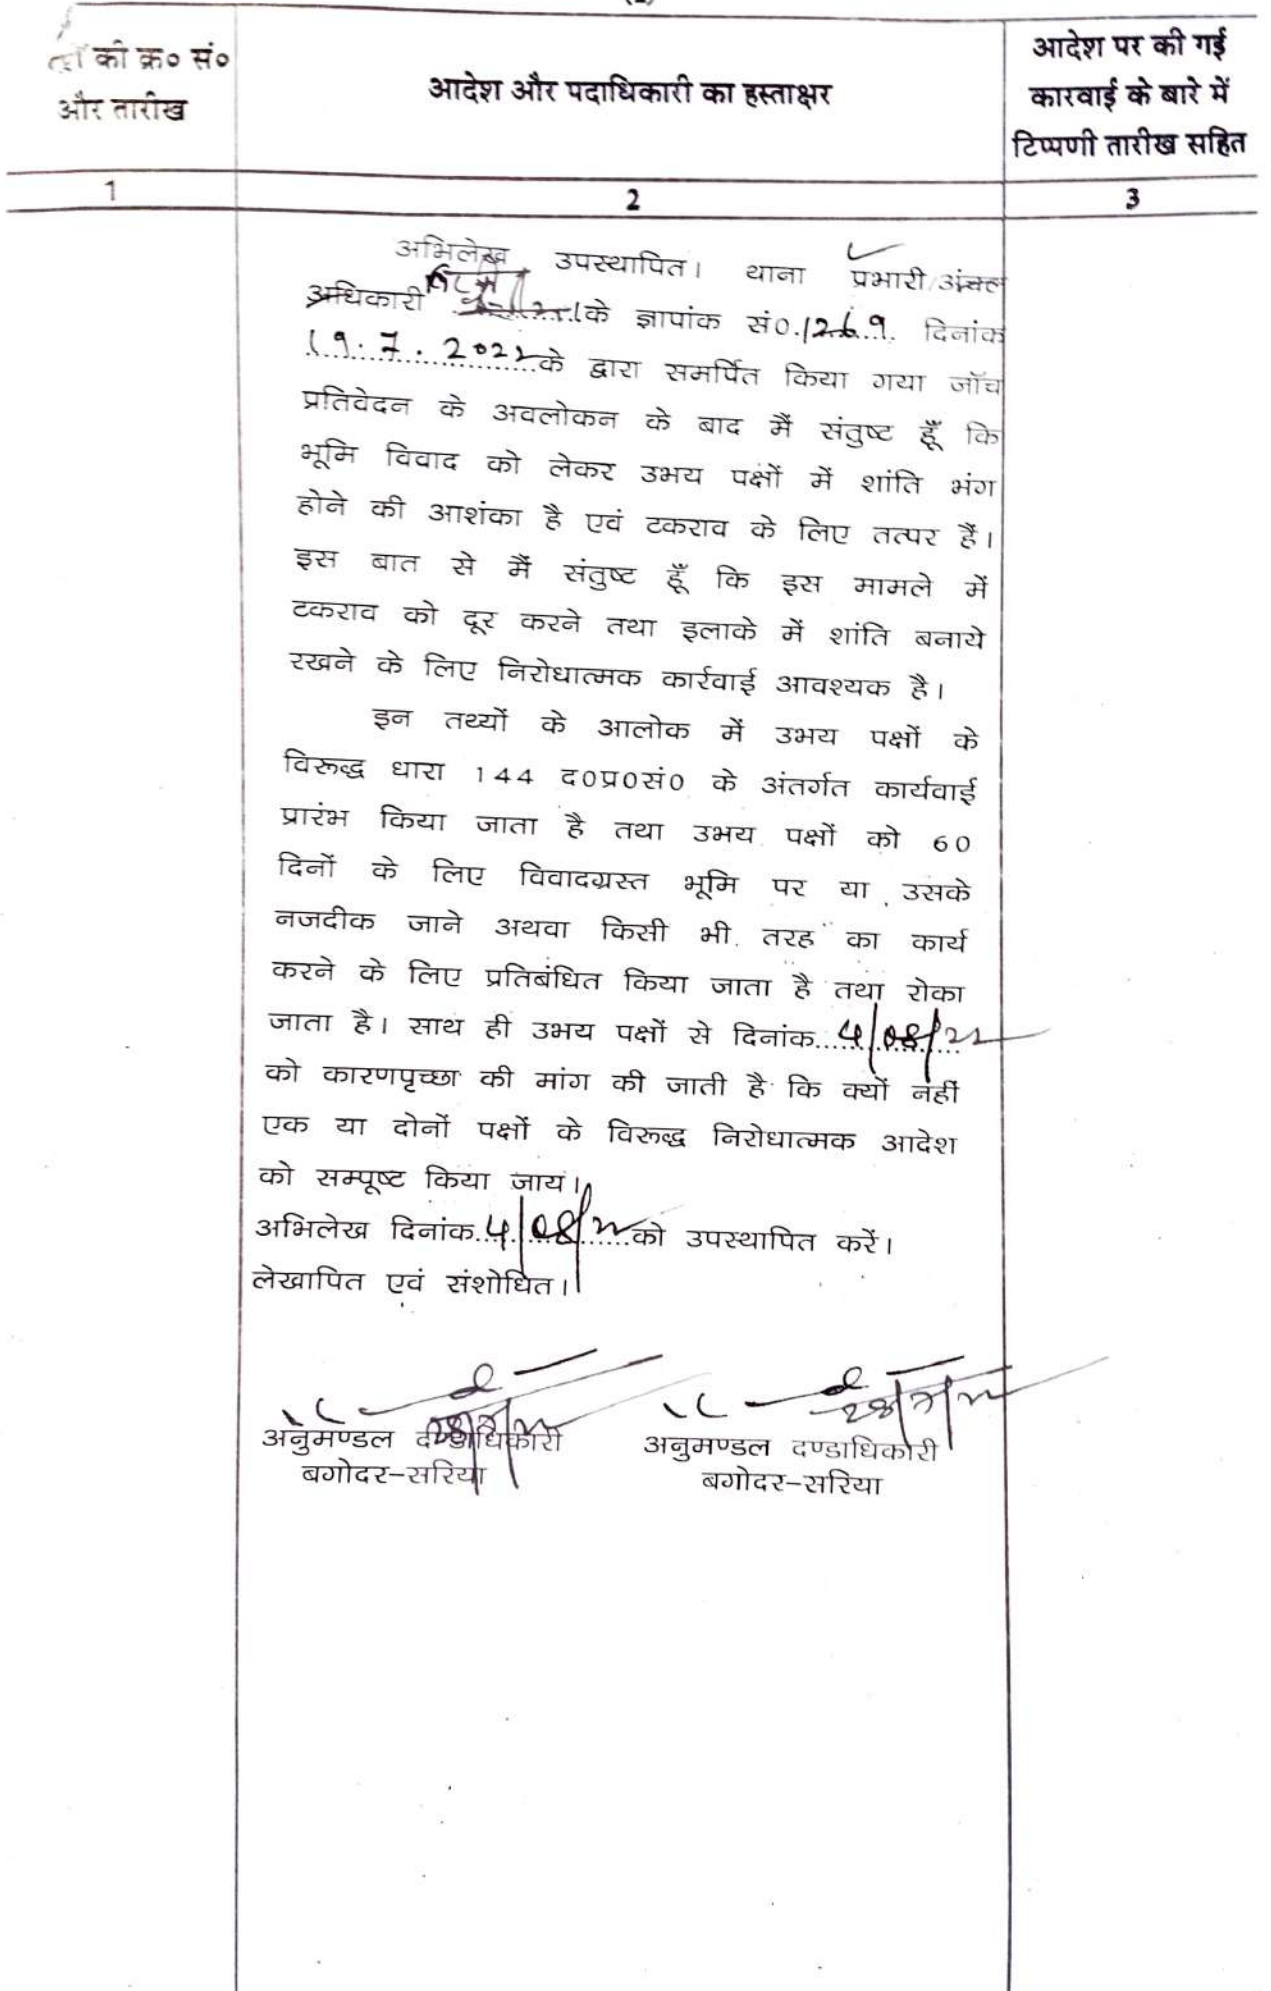 की क्र० सं०
और तारीख
आदेश और पदाधिकारी का हस्ताक्षर
आदेश पर की गई
कारवाई के बारे में
टिप्पणी तारीख सहित
1
2
3
अभिलेख उपस्थापित। थाना प्रभारी/अंचल
अधिकारी के ज्ञापांक सं०.1269. दिनांक
19.7.2022 के द्वारा समर्पित किया गया जॉच
प्रतिवेदन के अवलोकन के बाद मैं संतुष्ट हूँ कि
भूमि विवाद को लेकर उभय पक्षों में शांति भंग
होने की आशंका है एवं टकराव के लिए तत्पर हैं।
इस बात से मैं संतुष्ट हूँ कि इस मामले में
टकराव को दूर करने तथा इलाके में शांति बनाये
रखने के लिए निरोधात्मक कार्रवाई आवश्यक है।
इन तथ्यों के आलोक में उभय पक्षों के
विरूद्ध धारा 144 द०प्र०सं० के अंतर्गत कार्यवाई
प्रारंभ किया जाता है तथा उभय पक्षों को 60
दिनों के लिए विवादग्रस्त भूमि पर या उसके
नजदीक जाने अथवा किसी भी तरह का कार्य
करने के लिए प्रतिबंधित किया जाता है तथा रोका
जाता है। साथ ही उभय पक्षों से दिनांक...4/08/22
को कारणपृच्छा की मांग की जाती है कि क्यों नहीं
एक या दोनों पक्षों के विरूद्ध निरोधात्मक आदेश
को सम्पूष्ट किया जाय।
अभिलेख दिनांक..4/08/22 को उपस्थापित करें।
लेखापित एवं संशोधित।
28/7/22 28/7/22
अनुमण्डल दण्डाधिकारी अनुमण्डल दण्डाधिकारी
बगोदर-सरिया बगोदर-सरिया